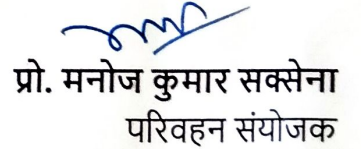 प्रो. मनोज कुमार सक्सेना
परिवहन संयोजक